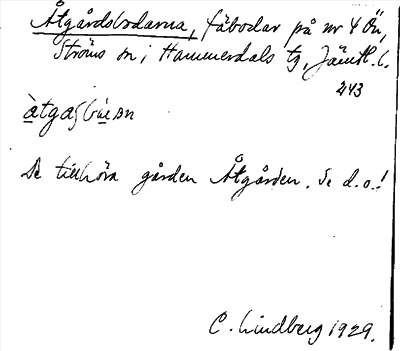 Åtgårdsbodarna, fäbodar på nr 4 Ön,
Ströms sn i Hammerdals tg, Jämtl. l.
243
De tillhöra gården Åtgården. Se d.o.!
C. Lindberg 1929.